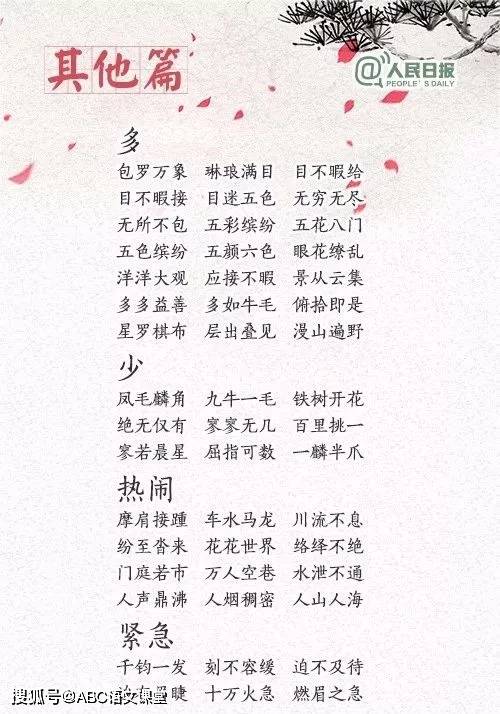 其他篇
@人民日报
PEOPLE'S DAILY
多
包罗万象 琳琅满目 目不暇给
目不暇接 目迷五色 无穷无尽
无所不包 五彩缤纷 五花八门
五色缤纷 五颜六色 眼花缭乱
洋洋大观 应接不暇 景从云集
多多益善 多如牛毛 俯拾即是
星罗棋布 层出叠见 漫山遍野
少
凤毛麟角 九牛一毛 铁树开花
绝无仅有 寥寥无几 百里挑一
寥若晨星 屈指可数 一鳞半爪
热闹
摩肩接踵 车水马龙 川流不息
纷至沓来 花花世界 络绎不绝
门庭若市 万人空巷 水泄不通
人声鼎沸 人烟稠密 人山人海
紧急
千钧一发 刻不容缓 迫不及待
眉睫 十万火急 燃眉之急
搜狐号@ABC语文课堂